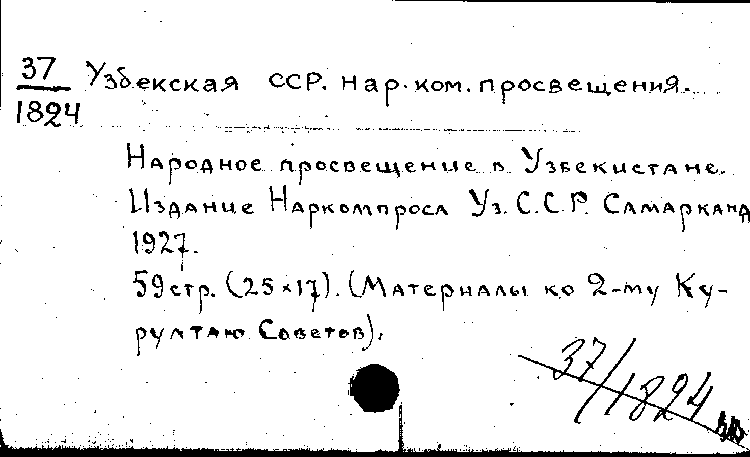 37 Узбекская ССР. Нар.ком.просвещения.
1824
Народное просвещение в Узбекистане.
Издание Наркомпроса Уз.С.С.Р. Самарканд
1927.
59стр. (25×17). (Материалы ко 2-му Ку-
рултаю Советов).
37/1824